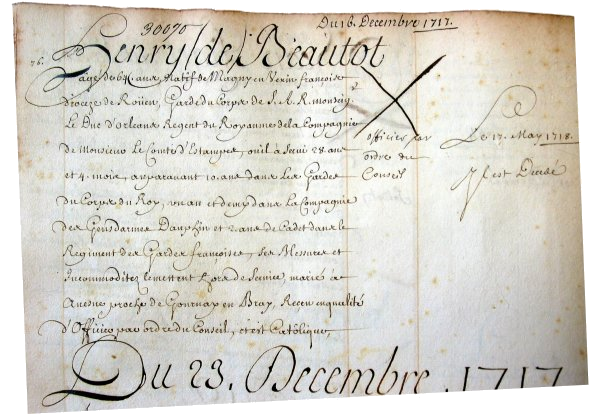 30070
Du 16. Decembre 1717.
76.
Henry de Beautot
agé de 64. ans, Natif de Magny en Vexin françois
Dioceze de Roüen, Garde du Corps de S. A. R. monseigr.
Le Duc d'Orleans Regent du Royaume de la Compagnie
de Monsieur Le Comte d'Estampes, ou il à Servi 28 ans
et 4. mois, auparavant 10 ans dans les Gardes
du Corps du Roy, un an et demy dans la Compagnie
des Gensdarmes Dauphin et 2 ans de Cadet dans le
Regiment des Gardes françoises, Ses Blessures et
Incommoditez le mettent hors de Service, marié à
Avesnes proche de Gournay en Bray, Receu en qualité
d'Officier par ordre du Conseil, et est Catôlique,
Officier par
ordre du
Conseil
Le
Le 17. May 1718.
Il est Decedé
Du 23. Decembre 1717